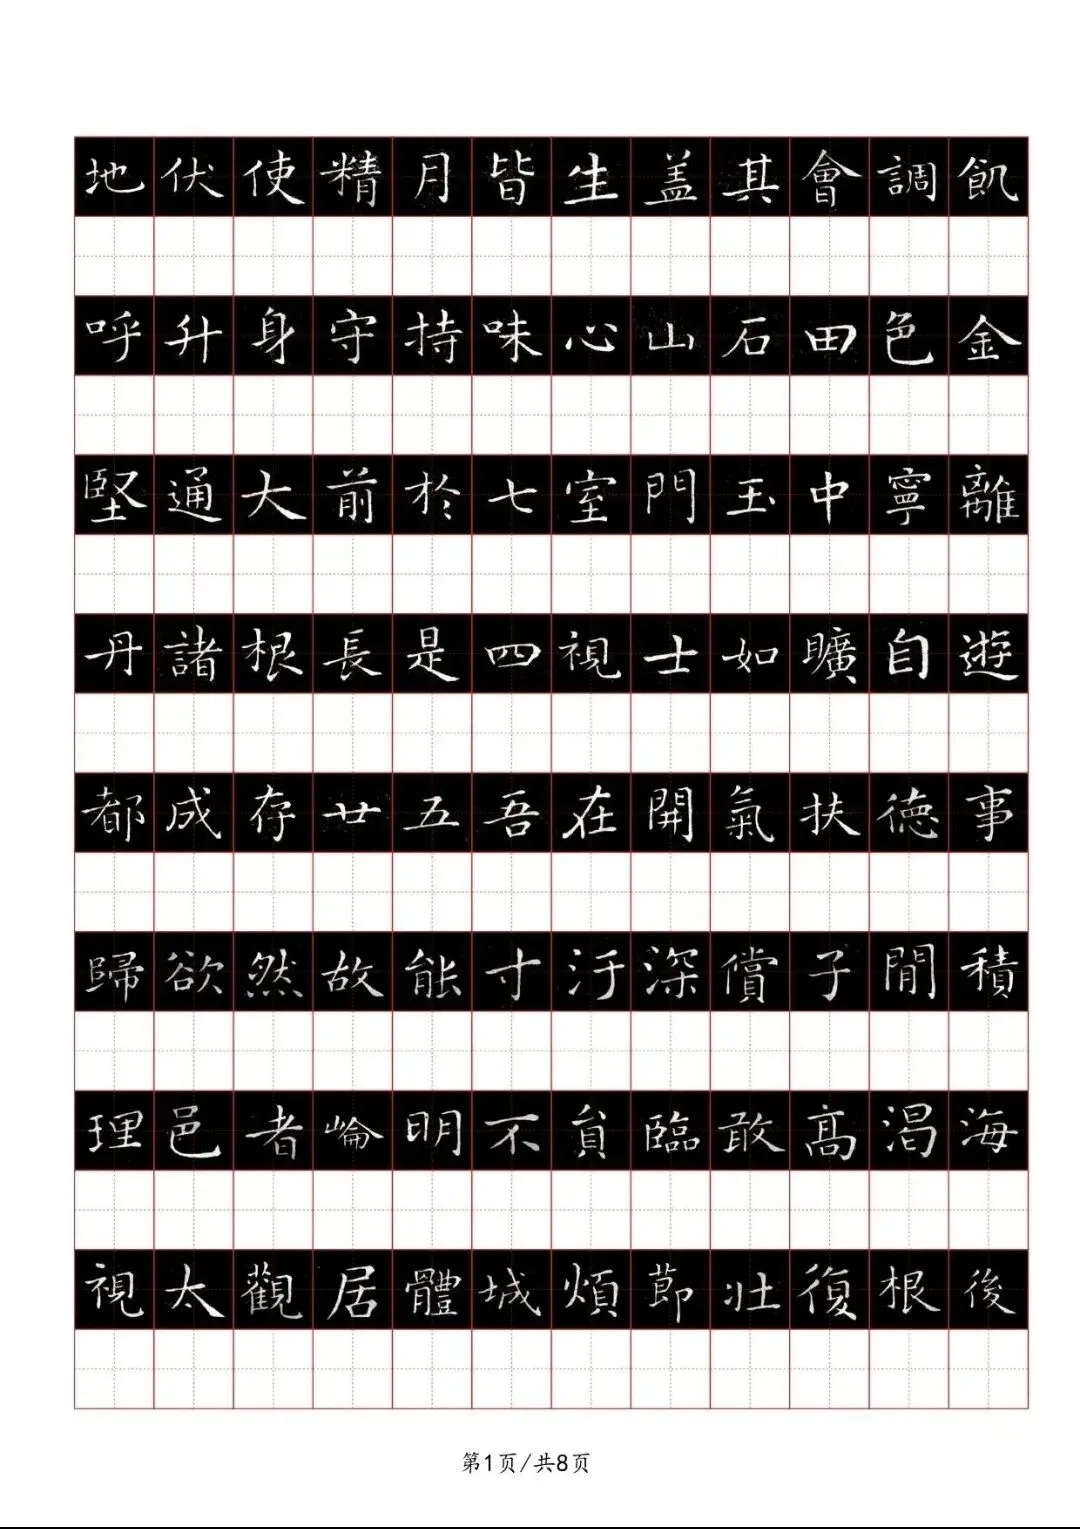 地伏使精月皆生盖其會調飢
呼升身守持味心山石田色金
堅通大前於七室門玉中寧離
丹諸根長是四視士如曠自遊
都成存廿五吾在開氣扶德事
歸欲然故能寸汙深償子閒積
理邑者崘明不負臨敢髙渴海
視太觀居體城煩莭壯復根後
第1页/共8页